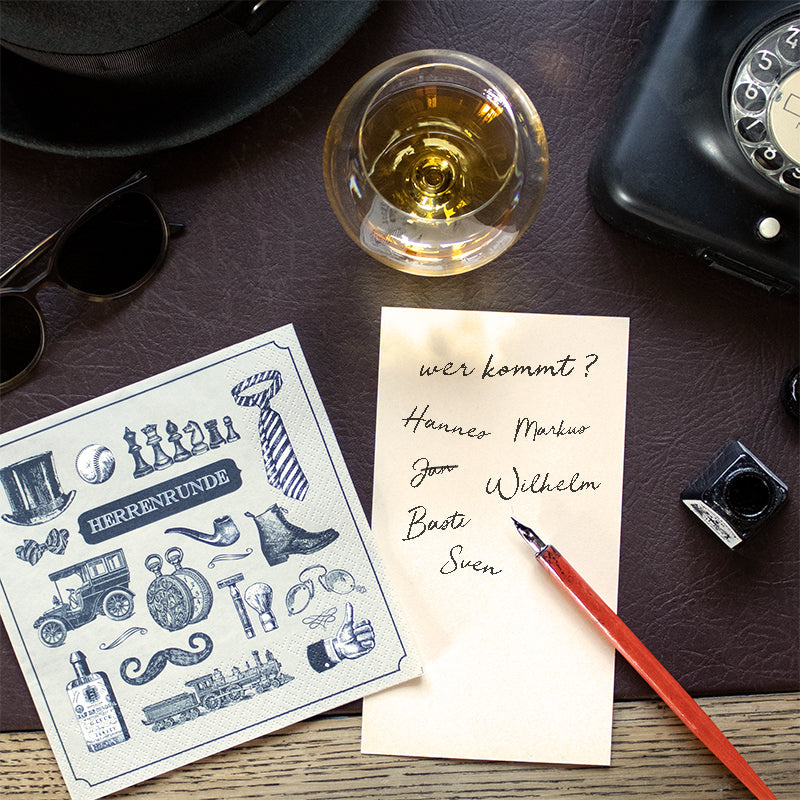 HERRENRUNDE
wer kommt?
Hannes Markus
Jan Wilhelm
Basti
Sven